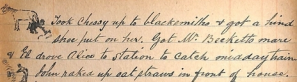 Took Chessy up to blacksmiths & got a hind
shoe put on her. Got Mr Becketts mare
& I drove Alice to Station to catch midday train
John raked up oat straws in front of house.